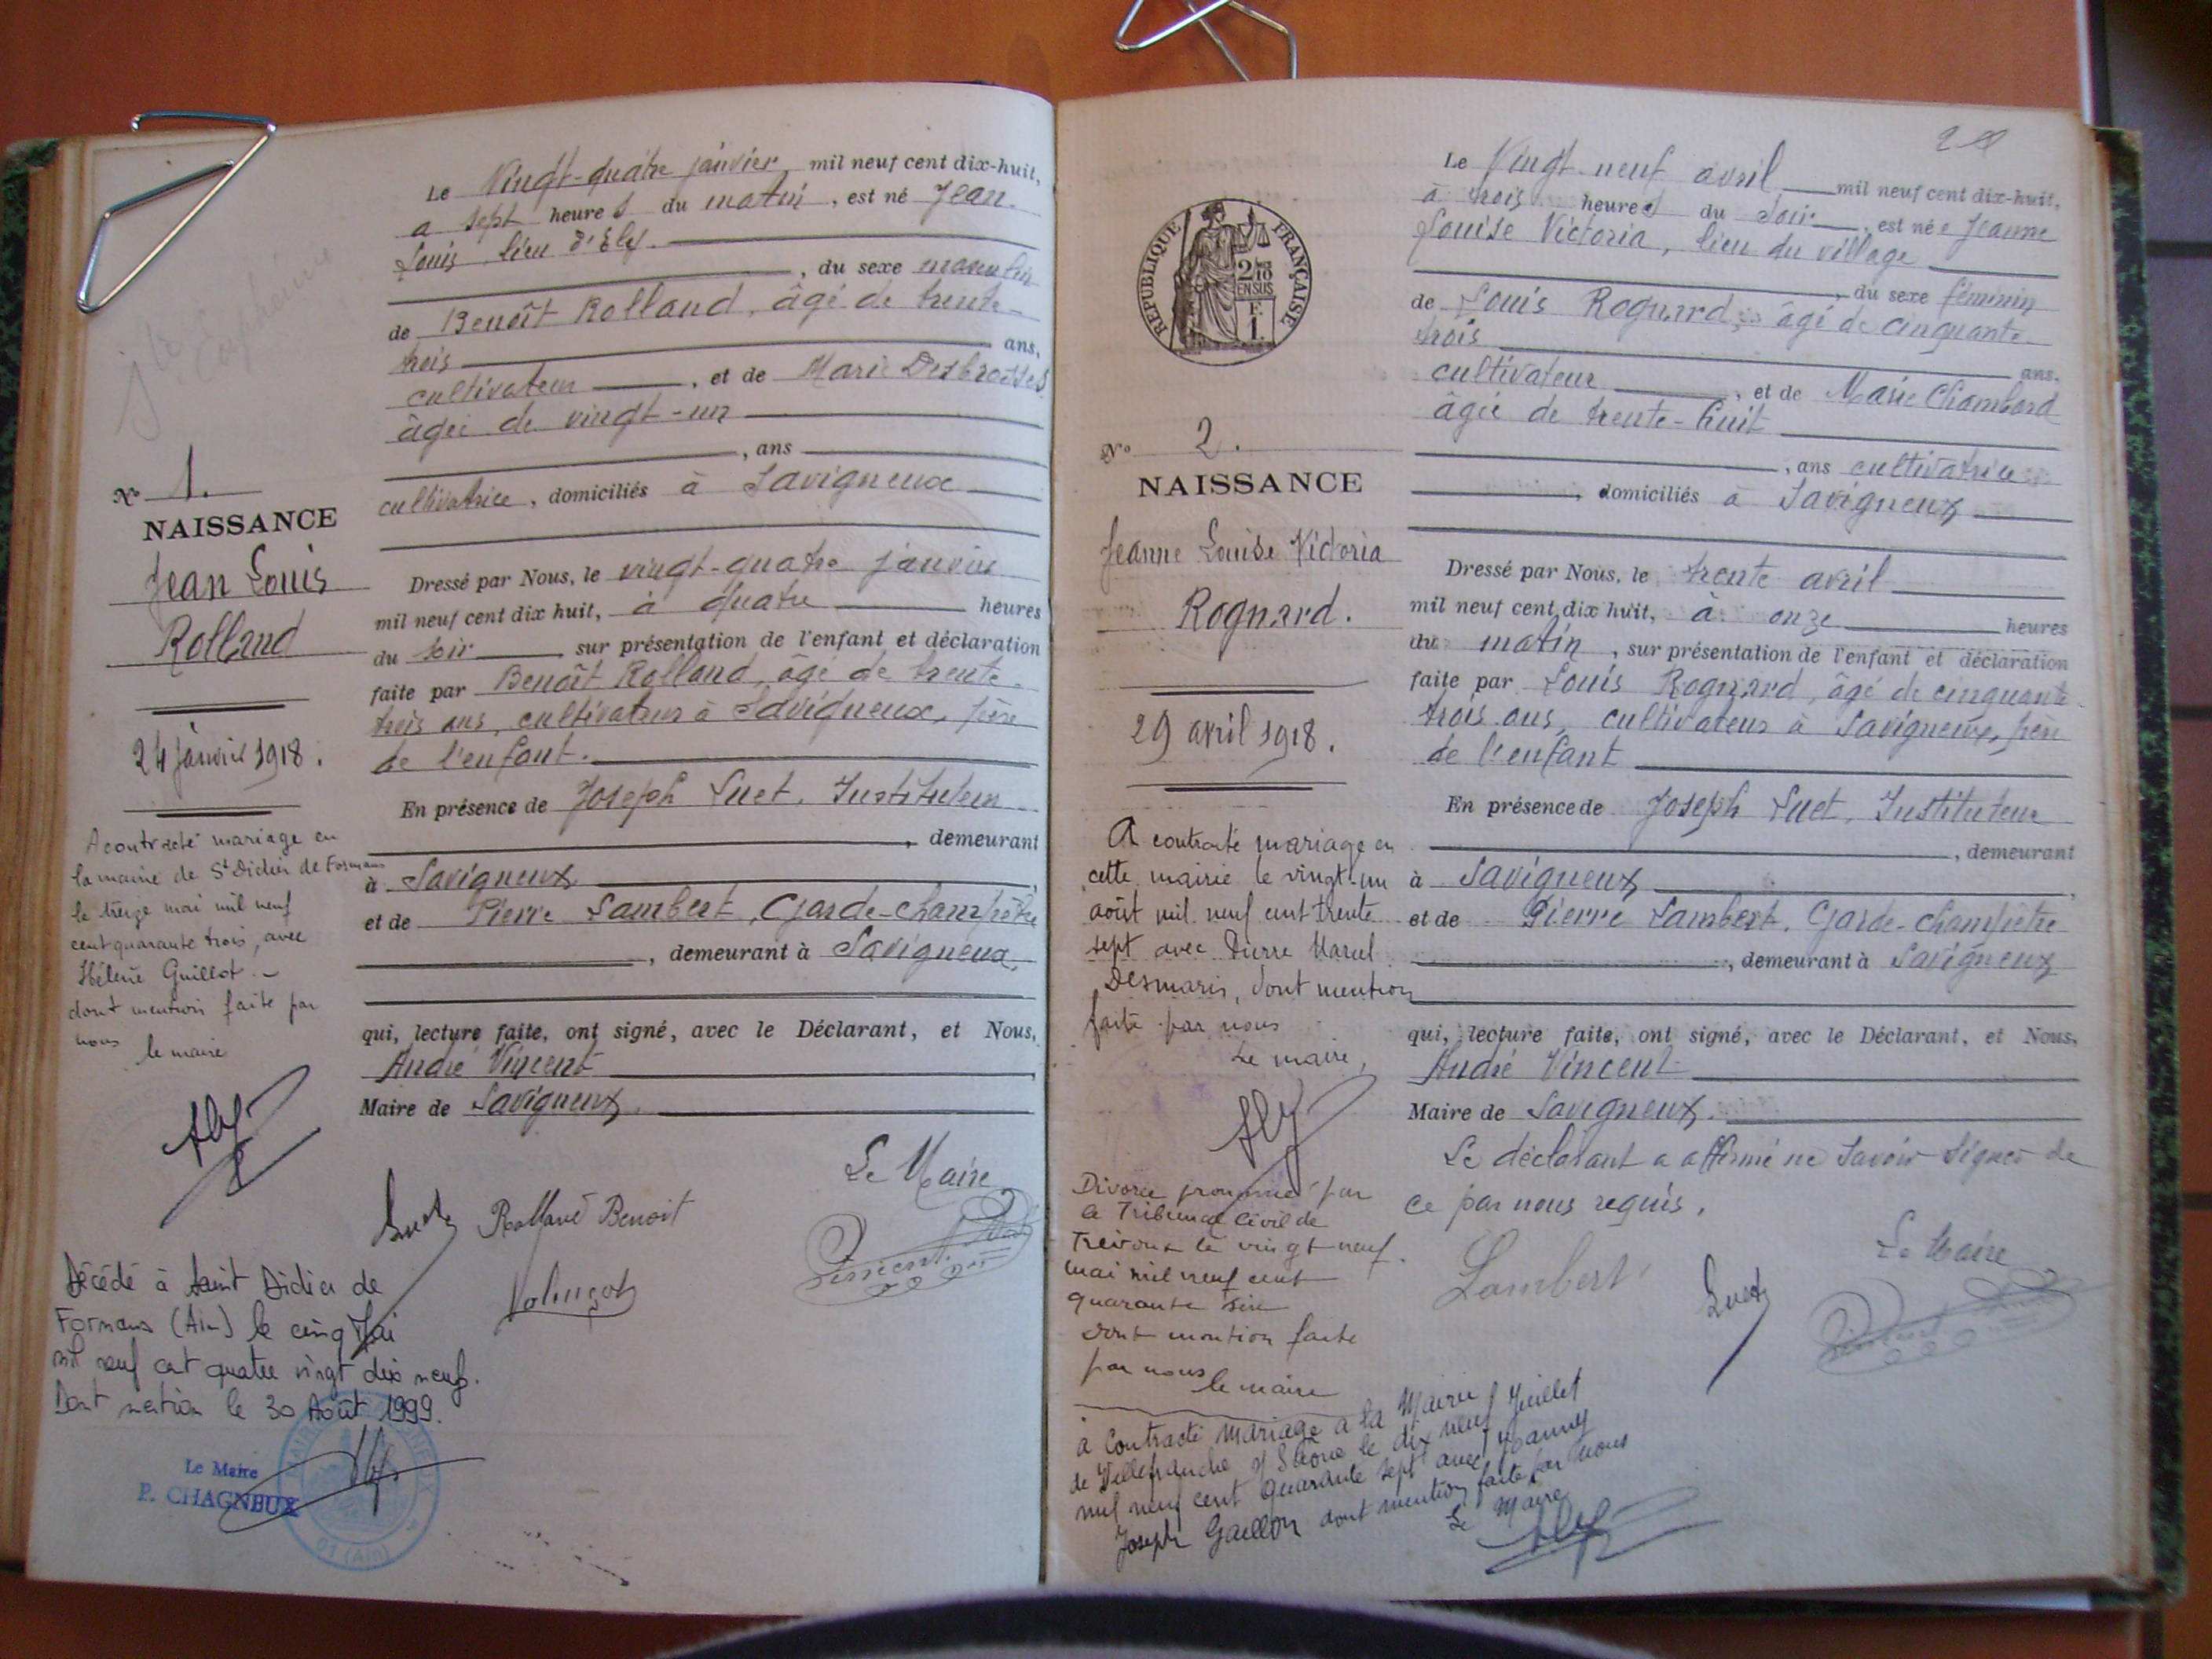 Le Vingt-quatre janvier mil neuf cent dix-huit,
a sept heures du matin, est né Jean
Louis, lieu d'Ely.
, du sexe masculin
de Benoît Rolland, âgé de trente-
trois ans,
cultivateur, et de Marie Desbrosses
âgée de vingt-un
, ans
cultivatrice, domiciliés à Savigneux
Dressé par Nous, le vingt-quatre janvier
mil neuf cent dix huit, à quatre heures
du soir sur présentation de l'enfant et déclaration
faite par Benoît Rolland, âgé de trente-
trois ans, cultivateur à Savigneux, père
de l'enfant.
En présence de Joseph Suet, Instituteur
, demeurant
à Savigneux,
et de Pierre Lambert, Garde-champêtre
, demeurant à Savigneux,
qui, lecture faite, ont signé, avec le Déclarant, et Nous,
André Vincent,
Maire de Savigneux.
Le Maire
Suet Rolland Benoit
Vincent
N° 1.
NAISSANCE
Jean Louis
Rolland
24 janvier 1918.
A contracté mariage en
la mairie de St Didier de Formans
le treize mai mil neuf
cent quarante trois, avec
Hélène Guillot. -
dont mention faite par
nous le maire
Décédé à Saint Didier de
Formans (Ain) le cinq Mai
mil neuf cent quatre vingt dix neuf.
Dont mention le 30 Août 1999.
Le Maire
P. CHAGNEUX
01 (Ain)
2
RÉPUBLIQUE FRANÇAISE
2/10
EN SUS
F.
1.
N° 2.
NAISSANCE
Jeanne Louise Victoria
Rognard.
29 avril 1918.
A contracté mariage en
cette mairie le vingt-un
août mil neuf cent trente
sept avec Pierre Marcel
Desmaris, dont mention
faite par nous
Le maire,
Divorce prononcé par
le Tribunal Civil de
Trévoux le vingt neuf
mai mil neuf cent
quarante six
dont mention faite
par nous
le maire
a contracté mariage a la Mairie
de Villefranche s/ Saône le dix neuf Juillet
mil neuf cent quarante sept avec Joanny
Joseph Gaillon dont mention faite par nous
Le Maire
Le Vingt neuf avril mil neuf cent dix-huit,
à trois heures du soir, est née Jeanne
Louise Victoria, lieu du village
, du sexe féminin
de Louis Rognard, âgé de cinquante
trois ans,
cultivateur, et de Marie Chambard
âgée de trente-huit
, ans cultivatrice
, domiciliés à Savigneux
Dressé par Nous, le trente avril
mil neuf cent dix huit, à onze heures
du matin, sur présentation de l'enfant et déclaration
faite par Louis Rognard, âgé de cinquante
trois ans, cultivateur à Savigneux, père
de l'enfant
En présence de Joseph Suet, Instituteur
, demeurant
à Savigneux,
et de Pierre Lambert, Garde-champêtre
, demeurant à Savigneux
qui, lecture faite, ont signé, avec le Déclarant, et Nous,
André Vincent
Maire de Savigneux.
Le déclarant a affirmé ne savoir signer de
ce par nous requis.
Le Maire
Lambert Suet